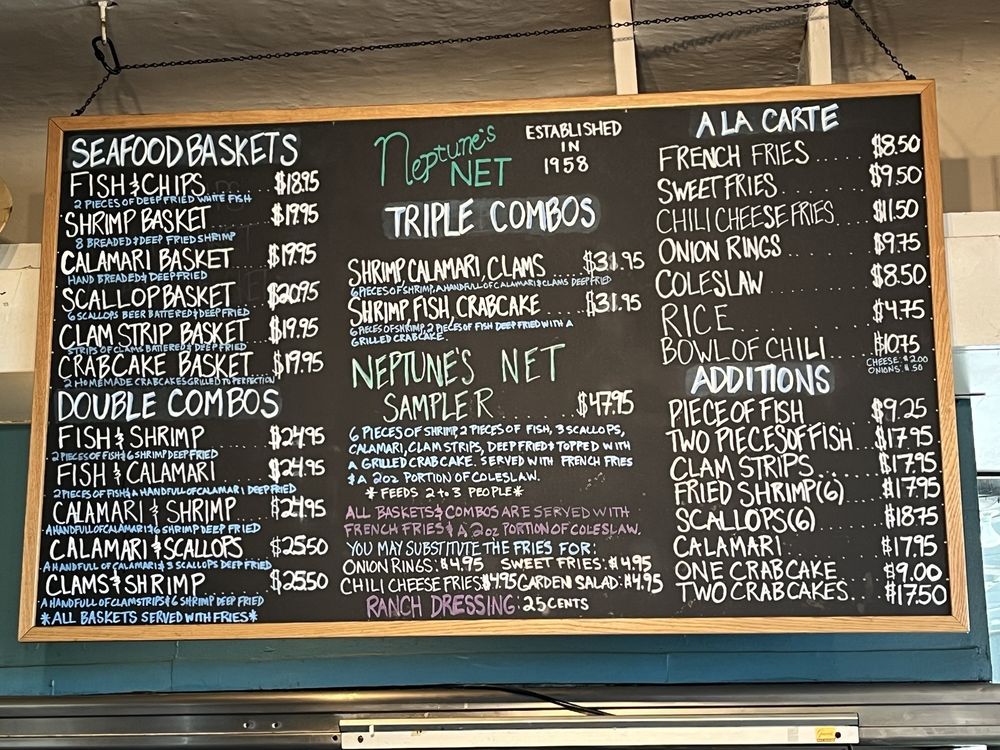 SEAFOOD BASKETS
FISH & CHIPS.... $18.95
2 PIECES OF DEEP FRIED WHITE FISH
SHRIMP BASKET.... $19.95
8 BREADED & DEEP FRIED SHRIMP
CALAMARI BASKET.. $19.95
HAND BREADED & DEEP FRIED
SCALLOP BASKET... $20.95
6 SCALLOPS BEER BATTERED & DEEP FRIED
CLAM STRIP BASKET. $19.95
STRIPS OF CLAMS BATTERED & DEEP FRIED
CRABCAKE BASKET.. $19.95
2 HOMEMADE CRABCAKES GRILLED TO PERFECTION
DOUBLE COMBOS
FISH & SHRIMP.... $24.95
2 PIECES OF FISH & 6 SHRIMP DEEP FRIED
FISH & CALAMARI... $24.95
2 PIECES OF FISH & A HANDFUL OF CALAMARI DEEP FRIED
CALAMARI & SHRIMP.. $24.95
A HANDFUL OF CALAMARI & 6 SHRIMP DEEP FRIED
CALAMARI & SCALLOPS.. $25.50
A HANDFUL OF CALAMARI & 3 SCALLOPS DEEP FRIED
CLAMS & SHRIMP.... $25.50
A HANDFULL OF CLAMSTRIPS & 6 SHRIMP DEEP FRIED
*ALL BASKETS SERVED WITH FRIES*
Neptune's NET
ESTABLISHED
IN
1958
TRIPLE COMBOS
SHRIMP, CALAMARI, CLAMS... $31.95
6 PIECES OF SHRIMP, A HANDFUL OF CALAMARI & CLAMS DEEP FRIED
SHRIMP, FISH, CRABCAKE... $31.95
6 PIECES OF SHRIMP, 2 PIECES OF FISH DEEP FRIED WITH A
GRILLED CRABCAKE.
NEPTUNE'S NET
SAMPLER...... $47.95
6 PIECES OF SHRIMP, 2 PIECES OF FISH, 3 SCALLOPS,
CALAMARI, CLAM STRIPS, DEEP FRIED & TOPPED WITH
A GRILLED CRAB CAKE. SERVED WITH FRENCH FRIES
& A 2OZ PORTION OF COLESLAW.
* FEEDS 2 to 3 PEOPLE*
ALL BASKETS & COMBOS ARE SERVED WITH
FRENCH FRIES & A 2oz PORTION OF COLESLAW.
YOU MAY SUBSTITUTE THE FRIES FOR:
ONION RINGS: $4.95 SWEET FRIES: $4.95
CHILI CHEESE FRIES: $4.95 GARDEN SALAD: $4.95
RANCH DRESSING: 25 CENTS
A LA CARTE
FRENCH FRIES..... $8.50
SWEET FRIES...... $9.50
CHILI CHEESE FRIES... $11.50
ONION RINGS..... $9.75
COLESLAW..... $8.50
RICE..... $4.75
BOWL OF CHILI.... $10.75
CHEESE: $2.00
ONIONS: $.50
ADDITIONS
PIECE OF FISH..... $9.25
TWO PIECES OF FISH.. $17.95
CLAM STRIPS.... $17.95
FRIED SHRIMP (6).. $17.95
SCALLOPS (6)..... $18.75
CALAMARI...... $17.95
ONE CRAB CAKE... $9.00
TWO CRAB CAKES... $17.50